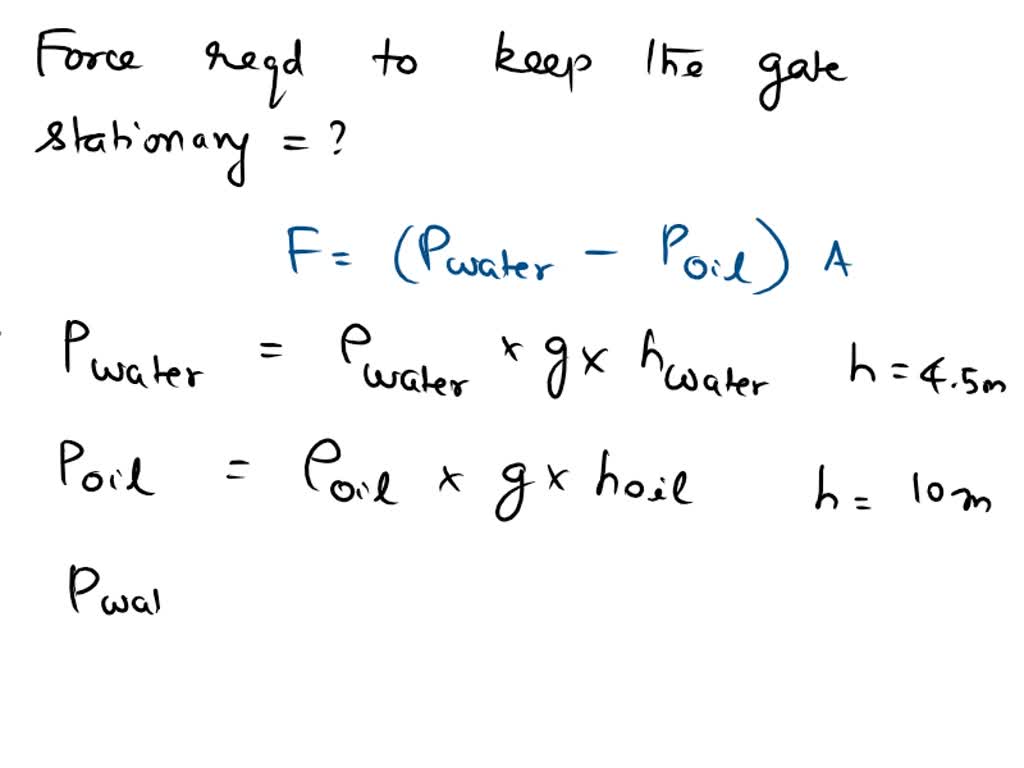 Force reqd to keep the gate
stationary = ?
F = (Pwater - Poil) A
Pwater = ρwater × g × hwater h = 4.5m
Poil = ρoil × g × hoil h = 10m
Pwat